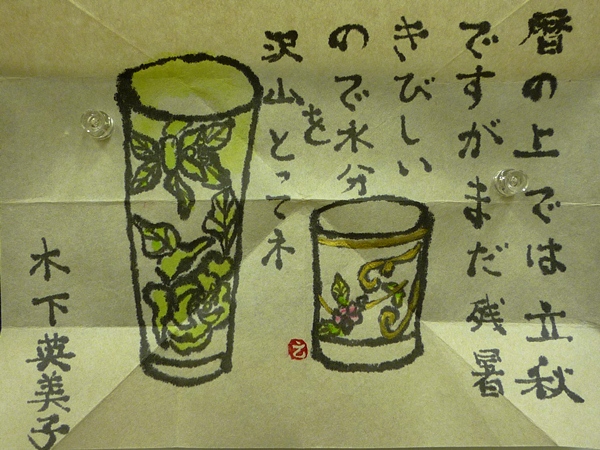 暦の上では立秋
ですがまだ残暑
きびしい
ので水分を
沢山とってネ
木下英美子
え